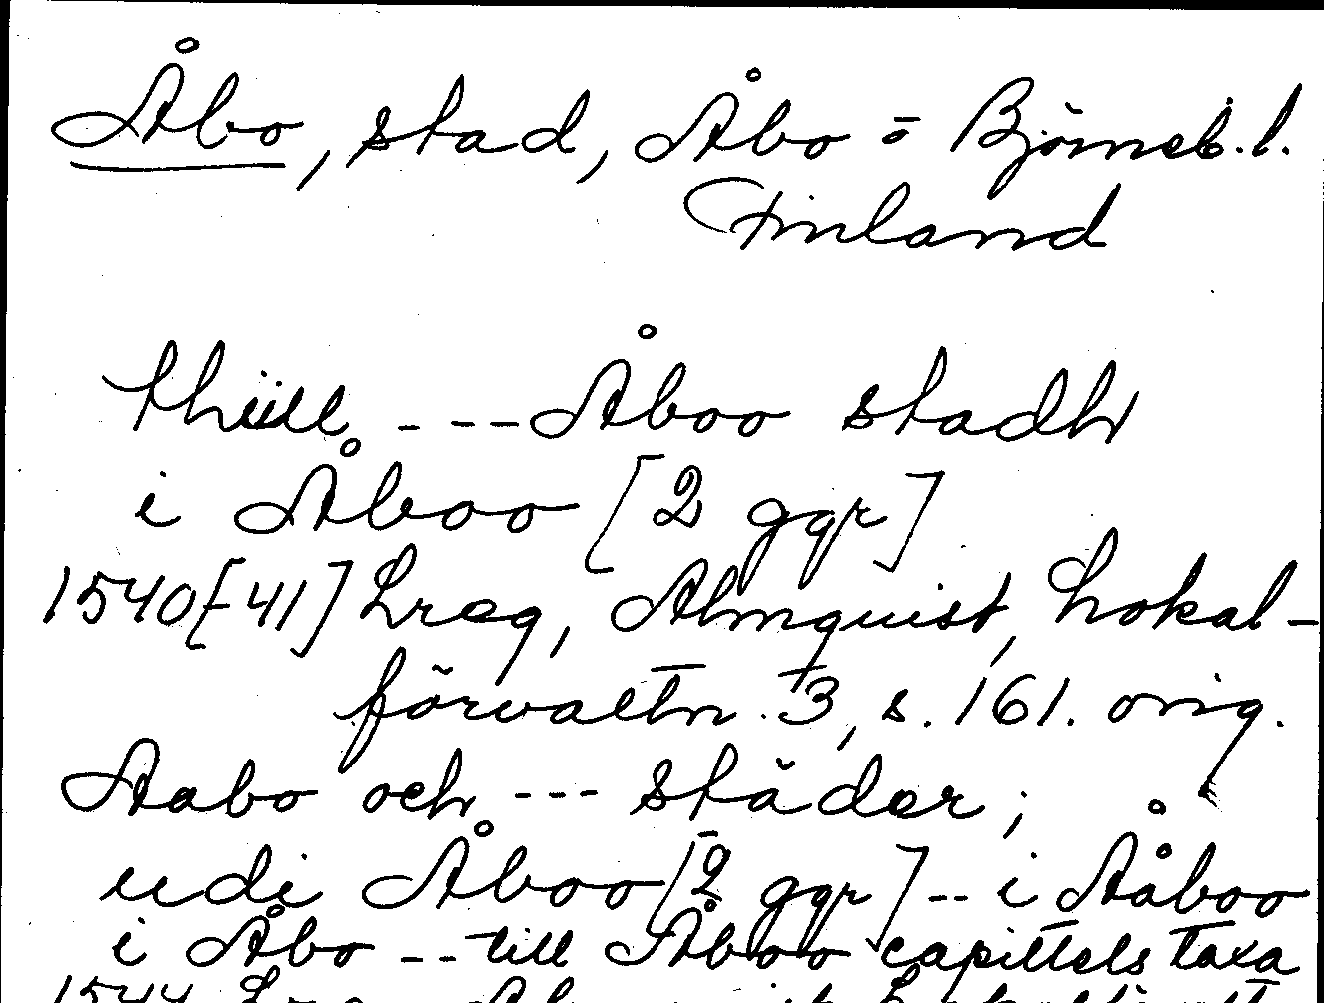 Åbo, stad, Åbo o Björneb. l.
Finland
thill --- Åboo stadh
i Åboo [2 ggr]
1540[-41] Lreg, Almquist, Lokal-
förvaltn. 3, s. 161. orig.
Aabo och --- städer;
udi Åboo [2 ggr] -- i Aåboo
i Åbo -- till Åboo capittels taxa
1544